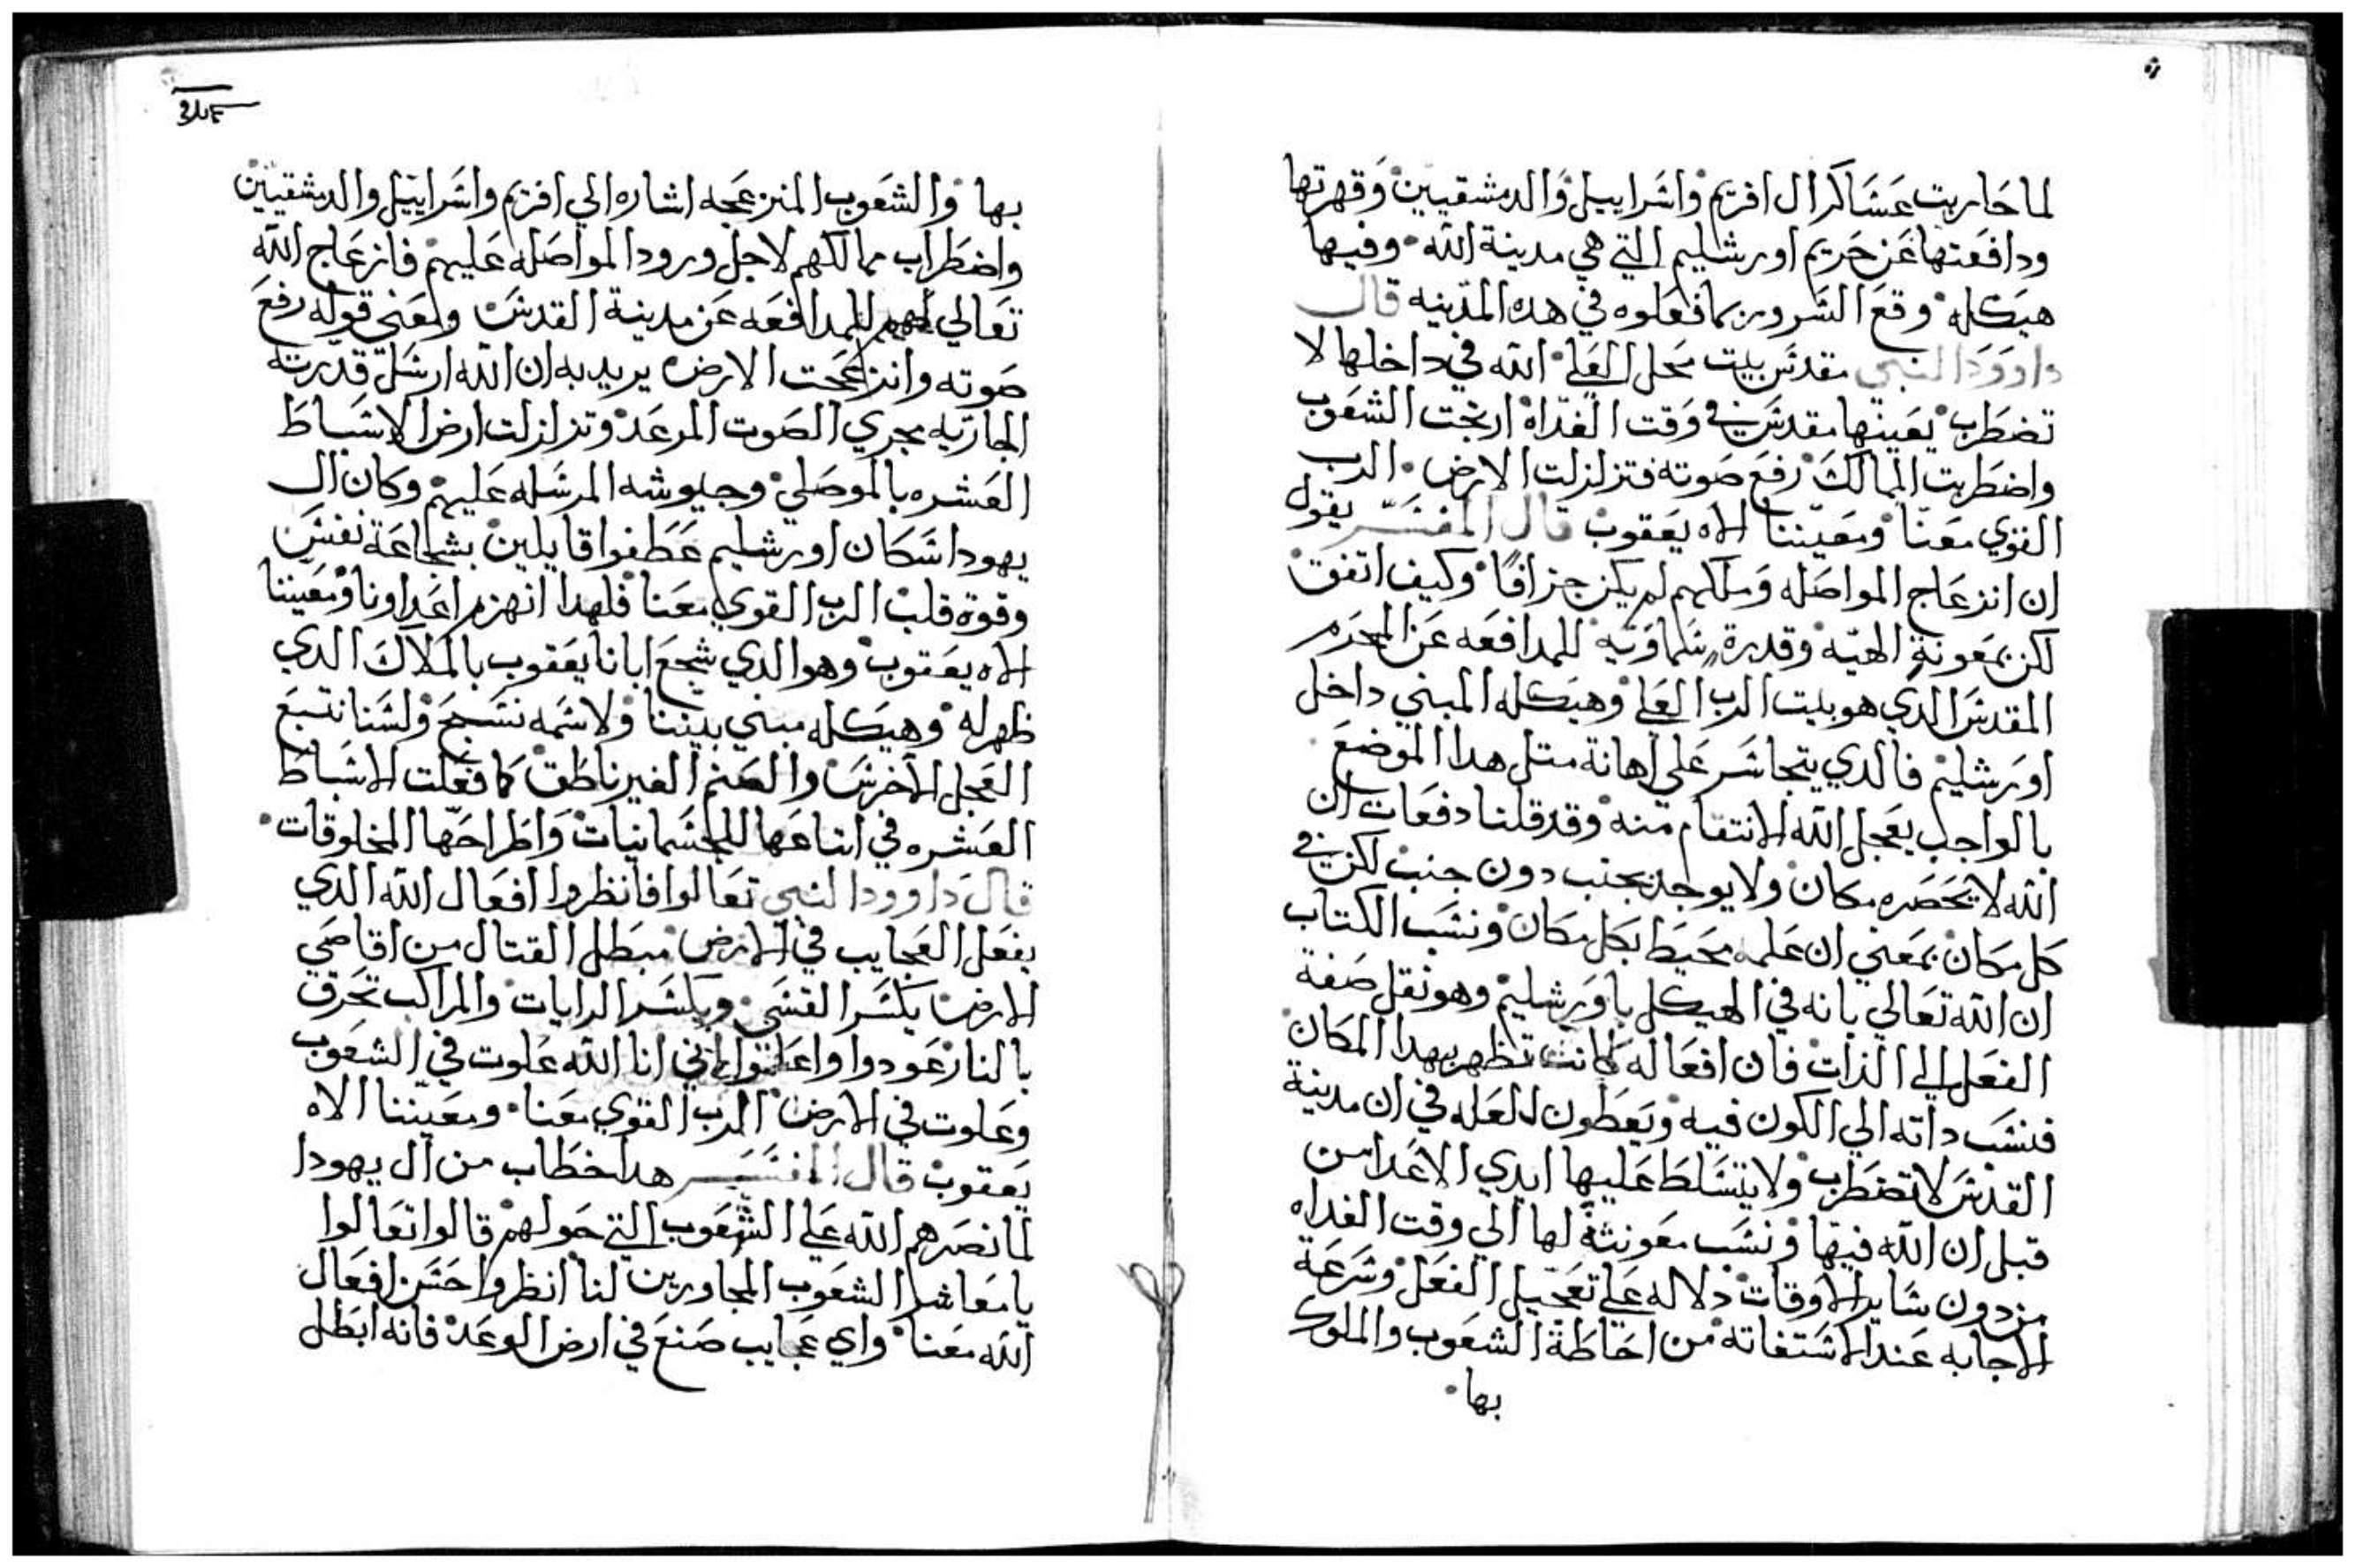 لما حاربت عساكر ال افريم واسراييل والدمشقيين وقهرتها
ودافعتها عن حريم اورشليم التي هي مدينة الله وفيها
هيكله وقع السرور بما فعلوه في هده المدينه قال
داوود النبي مقدس بيت محل العلي الله في داخلها لا
تضطرب يعينها مقدس في وقت الغداه ارتجت الشعوب
واضطربت الممالك رفع صوته فتزلزلت الارض الرب
القوي معنا ومعيننا الاه يعقوب قال المفسر يقول
ان انزعاج المواصله وملكهم لم يكن جزافا وكيف اتفق
لكن بمعونة الهيه وقدرة سماويه للمدافعه عن المحرم
المقدس الدي هو بيت الرب العلي وهيكله المبني داخل
اورشليم فالدي يتجاسر علي اهانة متل هدا الموضع
بالواجب يعجل الله الانتقام منه وقد قلنا دفعات ان
الله لا يحصره مكان ولا يوجد بجنب دون جنب لكن في
كل مكان بمعني ان علمه محيط بكل مكان ونسب الكتاب
ان الله تعالي بانه في الهيكل باورشليم وهو نقل صفة
الفعل الي الذات فان افعاله كانت تظهر بهدا المكان
فنسب داته الي الكون فيه ويعطون العله في ان مدينة
القدس لا تضطرب ولا يتسلط عليها ايدي الاعدا من
قبل ان الله فيها ونسب معونته لها الي وقت الغداه
من دون ساير الاوقات دلاله علي تعجيل الفعل وسرعة
الاجابه عند الاستغاته من احاطة الشعوب والملوك
بها
بها والشعوب المنزعجه اشاره الي افريم واسراييل والدمشقيين
واضطراب ممالكهم لاجل ورود المواصله عليهم فانزعاج الله
تعالي لهم للمدافعه عن مدينة القدس ومعني قوله رفع
صوته وانزعجت الارض يريد به ان الله ارسل قدرته
الجاريه مجري الصوت المرعد وتزلزلت ارض الاسباط
العشره بالموصلي وجيوشه المرسله عليهم وكان ال
يهودا سكان اورشليم عطفوا قايلين بشجاعة نفس
وقوة قلب الرب القوي معنا فلهدا انهزم اعداونا ومعيننا
الاه يعقوب وهو الدي شجع ابانا يعقوب بالملاك الدي
ظهر له وهيكله مبني بيننا ولاسمه نسبح ولسنا نتبع
العجل الاخرس والصنم الغير ناطق كما فعلت الاسباط
العشره في اتباعها للجسمانيات واطراحها المخلوقات
قال داوود النبي تعالوا فانظروا افعال الله الدي
يفعل العجايب في الارض مبطل القتال من اقاصي
الارض يكسر القسي ويكسر الرايات والمراكب تحرق
بالنار عودوا واعلموا اني انا الله علوت في الشعوب
وعلوت في الارض الرب القوي معنا ومعيننا الاه
يعقوب قال المفسر هدا خطاب من ال يهودا
لما نصرهم الله علي الشعوب التي حولهم قالوا تعالوا
يا معاشر الشعوب المجاورين لنا انظروا حسن افعال
الله معنا واي عجايب صنع في ارض الوعد فانه ابطل